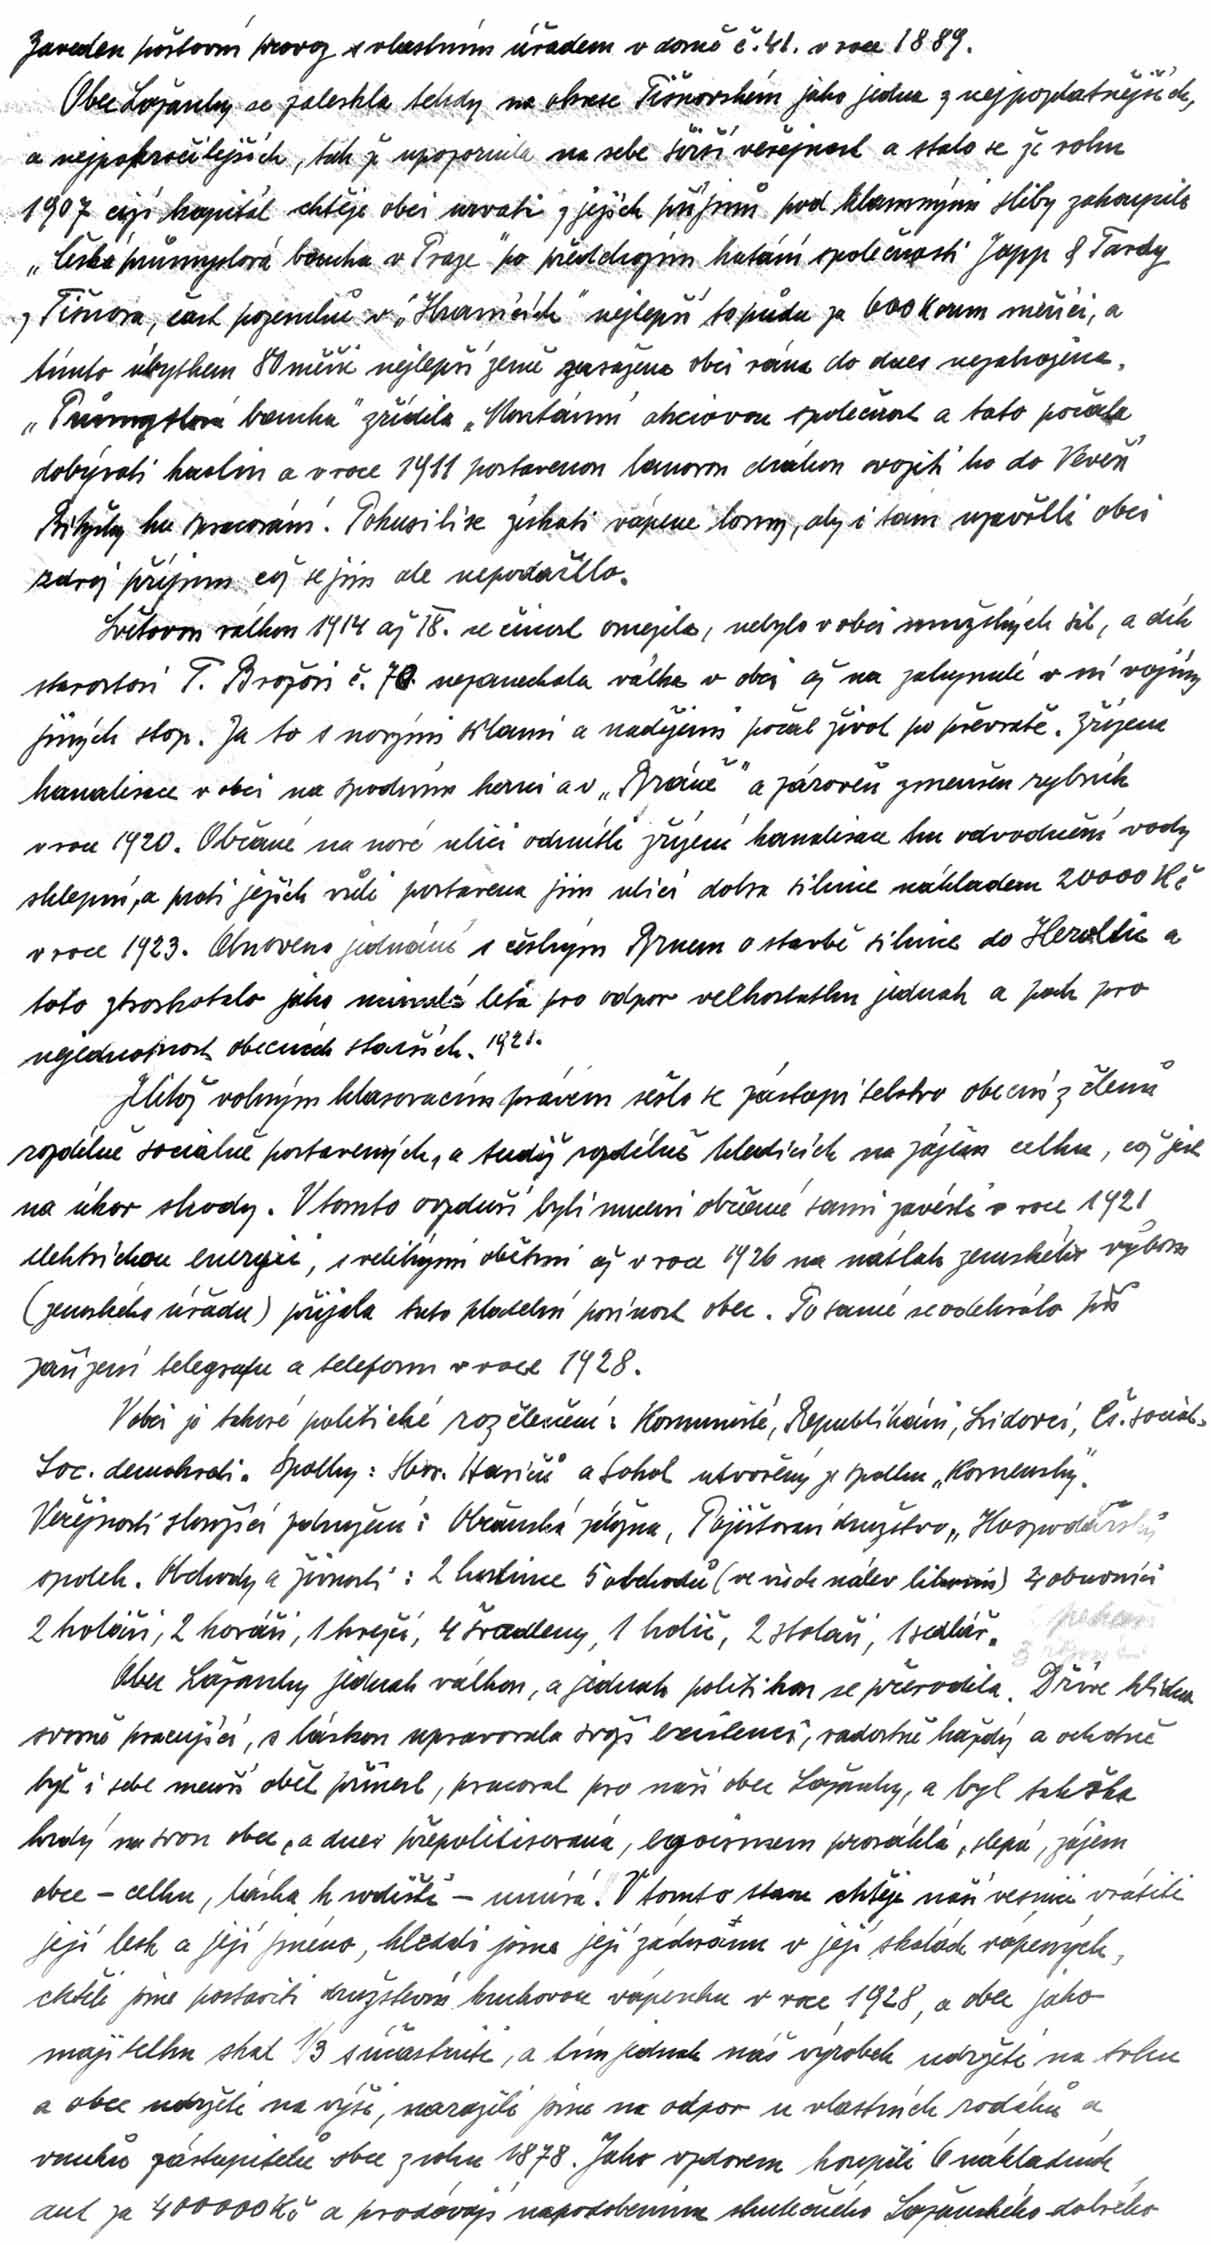 Zaveden poštovní provoz s vlastním úřadem v domě č. 41. v roce 1889.
Obec Lažánky se zaleskla tehdy na okrese Tišnovském jako jedna z nejpozdatnějších,
a nejpokročilejších, tak že upozornila na sebe širší veřejnost a stalo se že roku
1907 cizí kapitál chtěje obci urvati z jejích příjmů pod klamnými sliby zakoupila
„Česká průmyslová banka v Praze" po předchozím kutání společnosti Japp & Tardy
z Tišnova, část pozemků v „Hranicích" nejlepší to půdu za 600 korun měřici, a
tímto úbytkem 80 měřic nejlepší země zasazena obci rána do dnes nezahojena.
„Průmyslová banka" zřídila „Montánní akciovou společnost a tato počala
dobývati kaolin a v roce 1911 postavenou lanovou drahou svoziti ho do Veveř
Bitýšky ku zpracování. Pokusili se získati vápené lomy, aby i tam uzavřeli obci
zdroj příjmu což se jim ale nepodařilo.
Světovou válkou 1914 až 18. se činnost omezila, nebylo v obci mužských sil, a dík
starostovi T. Brožovi č. 70. nezanechala válka v obci až na zahynulé v ní vojíny
jiných stop. Za to s novými silami a nadějemi počal život po převratě. Zřízena
kanalisace v obci na spodním konci a v „Bráně" a zároveň zmenšen rybník
v roce 1920. Občané na nové ulici odmítli zřízení kanalisace ku odvodnění vody
sklepní, a proti jejich vůli postavena jim ulicí dobrá silnice nákladem 20000 Kč
v roce 1923. Obnoveno jednání s českým Brnem o stavbě silnice do Heroltic a
toto ztroskotalo jako minulá léta pro odpor velkostatku jednak a pak pro
nejednotnost obecních starších. 1921.
Jelikož volným hlasovacím právem sešlo se zastupitelstvo obecní z členů
rozdílně sociálně postavených, a tudíž rozdílně hledících na zájem celku, což jest
na úkor shody. V tomto ovzduší byli nuceni občané sami zavésti v roce 1921
elektrickou energii, s velikými obětmi až v roce 1926 na nátlak zemského výboru
(zemského úřadu) přijala tuto platební povinost obec. To samé se odehrálo při
zařízení telegrafu a telefonu v roce 1928.
V obci je takové politické rozčlenění: Komunisté, Republikáni, Lidovci, Čs. sociál.
Soc. demokrati. Spolky: Sbor. Hasičů a Sokol utvořený ze spolku „Komenský".
Veřejnosti sloužící zařízení: Občanská záložna, Pojišťovací družstvo, „Hospodářský
spolek. Obchody a živnosti: 2 hostince 5 obchodů (ve všech nálev lihovin) 4 obuvníci
2 koláři, 2 kováři, 1 krejčí, 4 švadleny, 1 holič, 2 stolaři, 1 sedlář.
Obec Lažánky jednak válkou, a jednak politikou se přerodila. Dříve klidná
svorně pracující, s láskou upravovala svoji existenci, radostně každý a ochotně
byť i sebe menší oběť přinesl, pracoval pro naši obec Lažánky, a byl takřka
hrdý na svou obec, a dnes přepolitisovaná, egoismem prosáklá, slepá, zájem
obce – celku, láska k rodišti – umírá. V tomto stavu chtěje naší vesnici vrátiti
její lesk a její jméno, hledali jsme její záchranu v její skalách vápených,
chtěli jsme postaviti družstevní kruhovou vápenku v roce 1928, a obec jako
majitelku skal 1/3 súčastniti, a tím jednak náš výrobek udržeti na trhu
a obec udržeti na výši, narazili jsme na odpor u vlastních rodáků a
vnuků zástupitelů obce z roku 1878. Jako vzdorem koupili 6 nákladních
aut za 400000 Kč a prodávají napodobeninu skutečného Lažánského dobrého